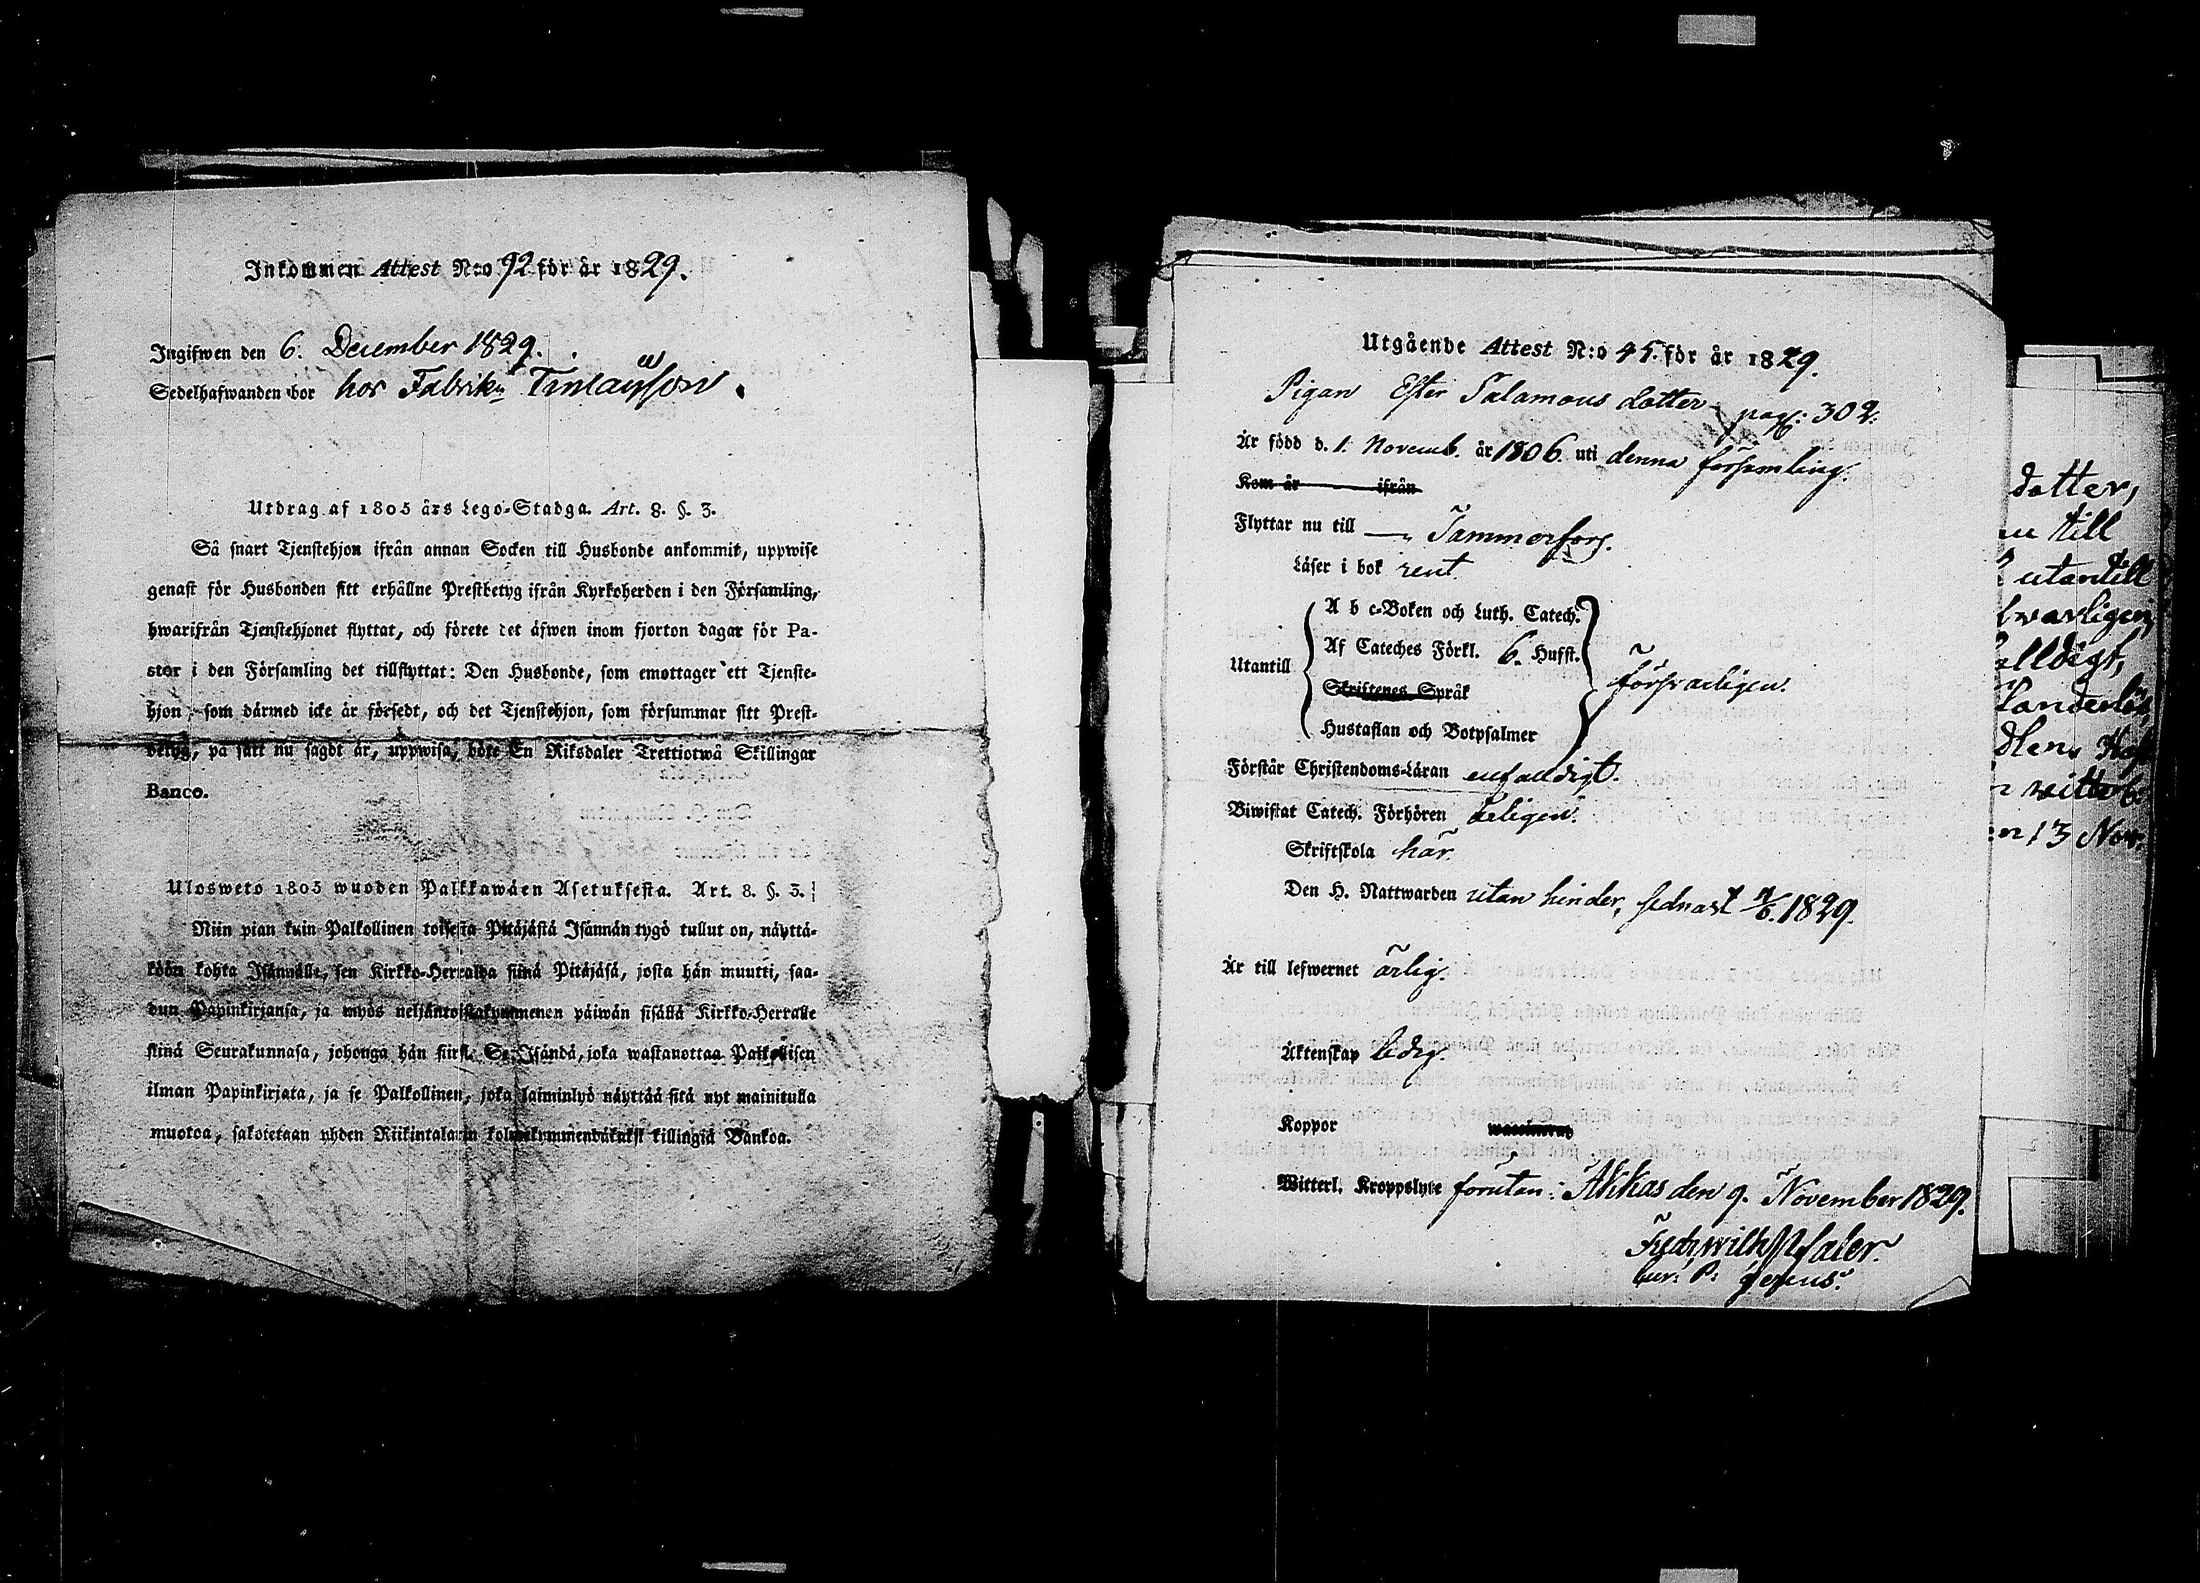 Inkommen Attest N:o 92 för år 1829.
Ingifwen den 6. December 1829.
Sedelhafwanden bor hos Fabrik: Finlaÿson.
Utdrag af 1805 års Lego-Stadga. Art. 8. §. 3.
Så snart Tjenstehjon ifrån annan Socken till Husbonde ankommit, uppwise
genast för Husbonden sitt erhållne Prestbetyg ifrån Kyrkoherden i den Församling,
hwarifrån Tjenstehjonet flyttat, och förete det äfwen inom fjorton dagar för Pa-
stor i den Församling det tillflyttat: Den Husbonde, som emottager ett Tjenste-
hjon som därmed icke är försedt, och det Tjenstehjon, som försummar sitt Prest-
betyg, på sätt nu sagdt är, uppwisa, böte En Riksdaler Trettiotwå Skillingar
Banco.
Ulosweto 1805 wuoden Palkkawäen Asetuksesta. Art. 8. §. 3.
Niin pian kuin Palkollinen toisesta Pitäjästä Isännän tygö tullut on, näyttä-
köön kohta Isännälle, sen Kirkko-Herralda siinä Pitäjäsä, josta hän muutti, saa-
dun Papinkirjansa, ja myös neljäntoistakymmenen päiwän sisällä Kirkko-Herralle
siinä Seurakunnasa, johonga hän siirsi. Se Isändä, joka wastanottaa Palkollisen
ilman Papinkirjata, ja se Palkollinen, joka laiminlyö näyttää sitä nyt mainitulla
muotoa, sakotetaan yhden Riikintalarin kolmekymmendäkaksi killingiä Bankoa.
Utgående Attest N:o 45. för år 1829.
Pigan Ester Salamons dotter pag: 302.
Är född d. 1. Novemb. år 1806. uti denna församling.
Kom år ifrån
Flyttar nu till Tammerfors.
Läser i bok rent
A b c-Boken och Luth. Catech.
Af Cateches Förkl. 6. Hufst.
Utantill försvarligen.
Skriftenes Språk
Hustaflan och Botpsalmer
Förstår Christendoms-Läran enfaldigt.
Biwistat Catech. Förhören
Skriftskola här.
Den H. Nattwarden utan hinder, sednast 7/6. 1829.
Är till lefwernet ärlig.
Äktenskap ledig.
Koppor
Witterl. Kroppslyte förutan: Akkas den 9. November 1829.
Fredr Wilh
dotter,
till
utantill
Nov.